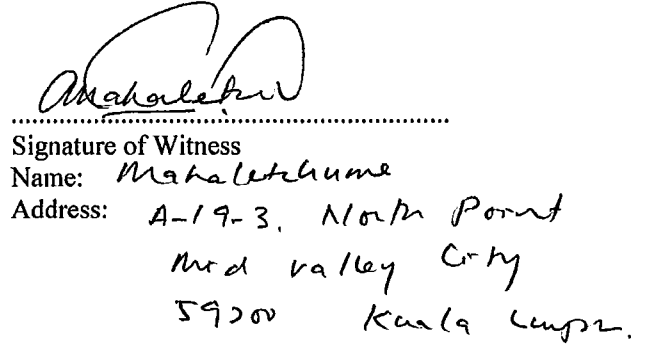 Signature of Witness
Name: Mahaletchume
Address: A-19-3, North Point
Mid valley City
59200 Kuala Lumpur.